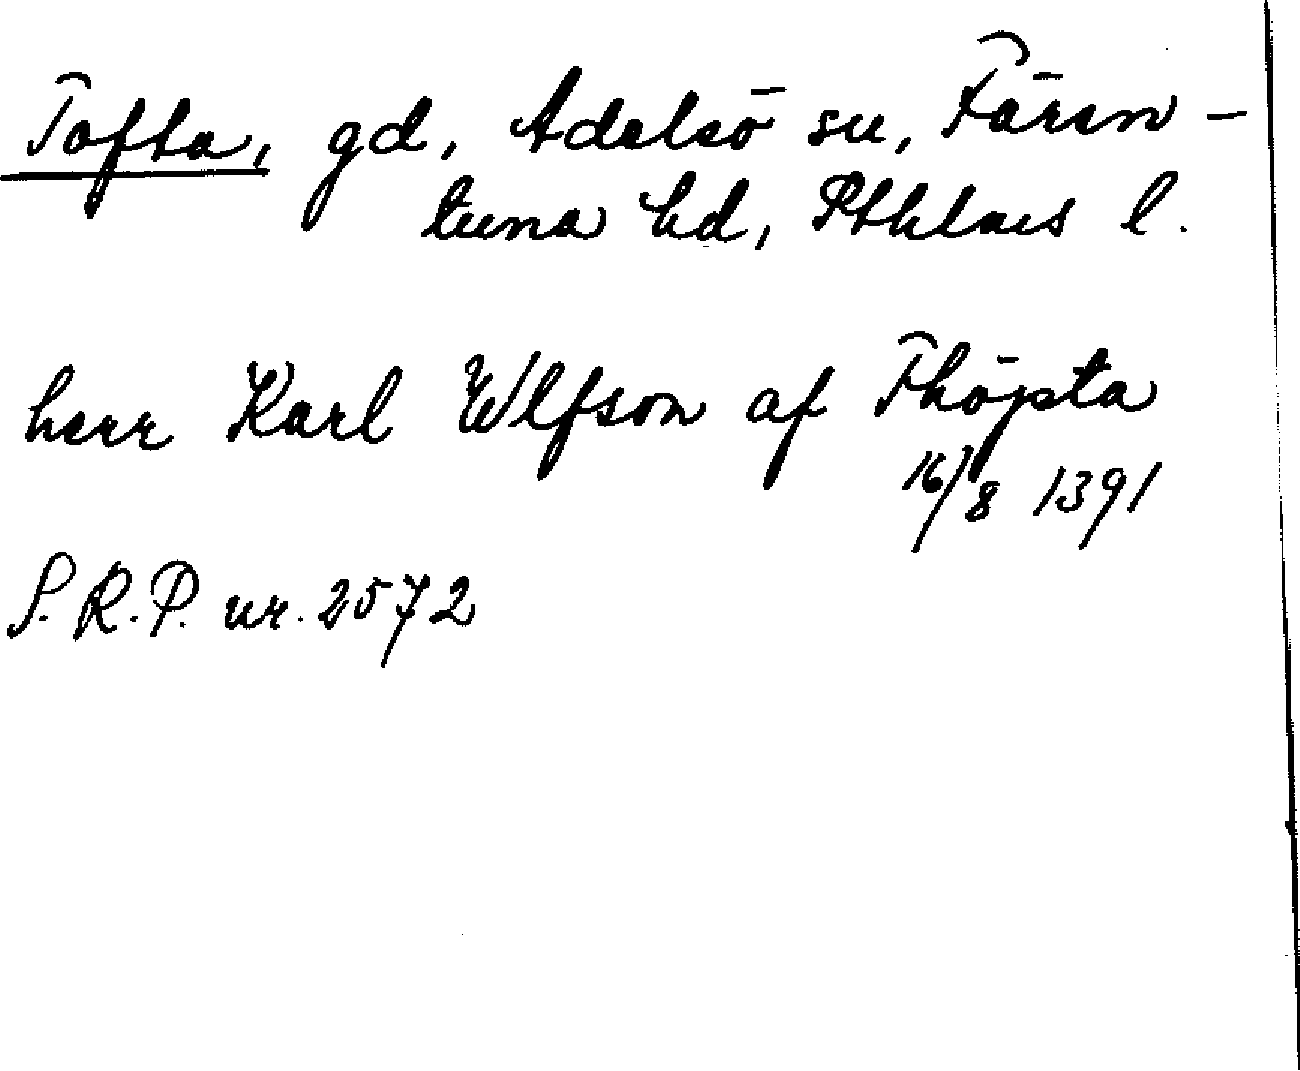 Tofta, gd, Adelsö sn, Fären-
tuna hd, Sthlms l.
herr Karl Wlfson af Thöpta
16/8 1391
S.R.P. nr. 2572